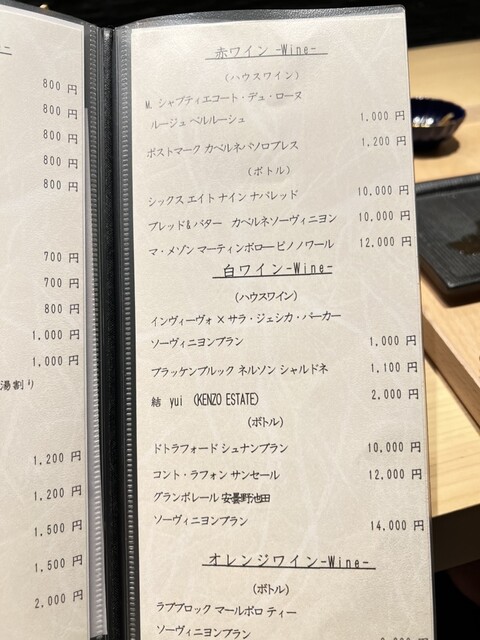 800 円
800 円
800 円
800 円
800 円
700 円
700 円
800 円
1,000 円
1,000 円
湯割り
1,200 円
1,200 円
1,500 円
1,500 円
2,000 円
赤ワイン -Wine-
(ハウスワイン)
M. シャプティエコート・デュ・ローヌ
ルージュ ベルルーシュ 1,000 円
ポストマーク カベルネパソロブレス 1,200 円
(ボトル)
シックス エイト ナイン ナパレッド 10,000 円
ブレッド&バター カベルネソーヴィニヨン 10,000 円
マ・メゾン マーティンボロー ピノ ノワール 12,000 円
白ワイン-Wine-
(ハウスワイン)
インヴィーヴォ × サラ・ジェシカ・パーカー
ソーヴィニヨンブラン 1,000 円
ブラッケンブルック ネルソン シャルドネ 1,100 円
結 yui (KENZO ESTATE) 2,000 円
(ボトル)
ドトラフォード シュナンブラン 10,000 円
コント・ラフォン サンセール 12,000 円
グランポレール 安曇野池田
ソーヴィニヨンブラン 14,000 円
オレンジワイン-Wine-
(ボトル)
ラブブロック マールボロ ティー
ソーヴィニヨンブラン